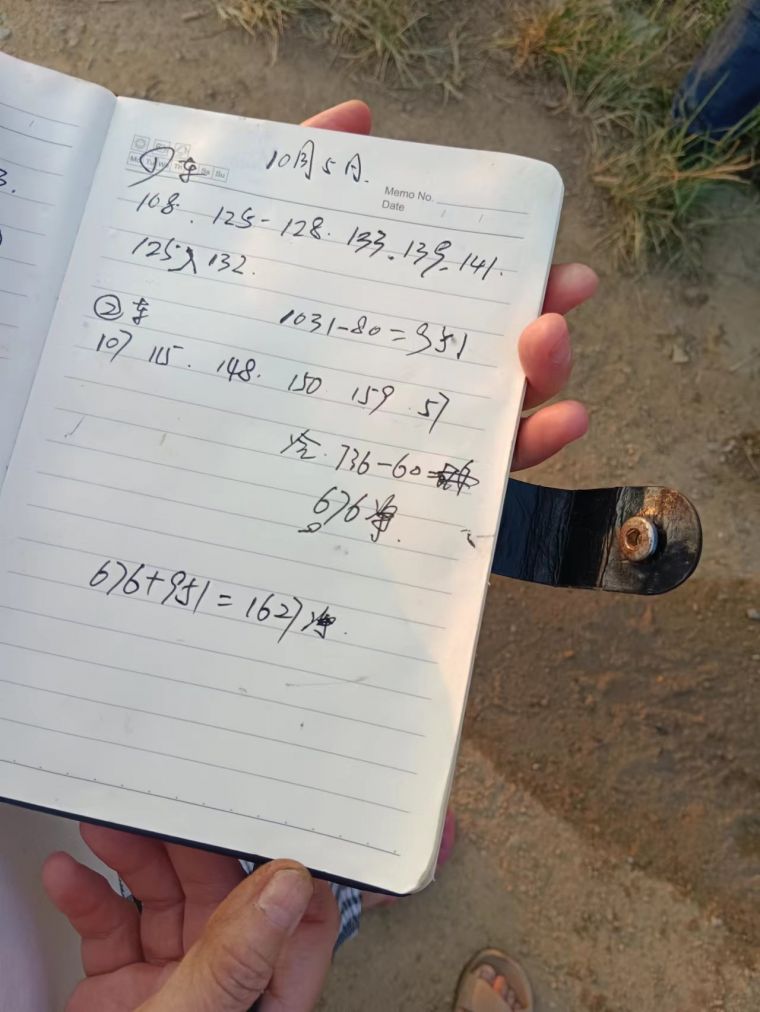 Mo Tu We Th Fr Sa Su
①车 10月5日.
Memo No.
Date / /
108. 125- 128. 133. 139. 141.
125 132.
②车 1031-80=951
107 115. 148. 150 159. 57
736-60=
676净.
676+951=1627净.
3.